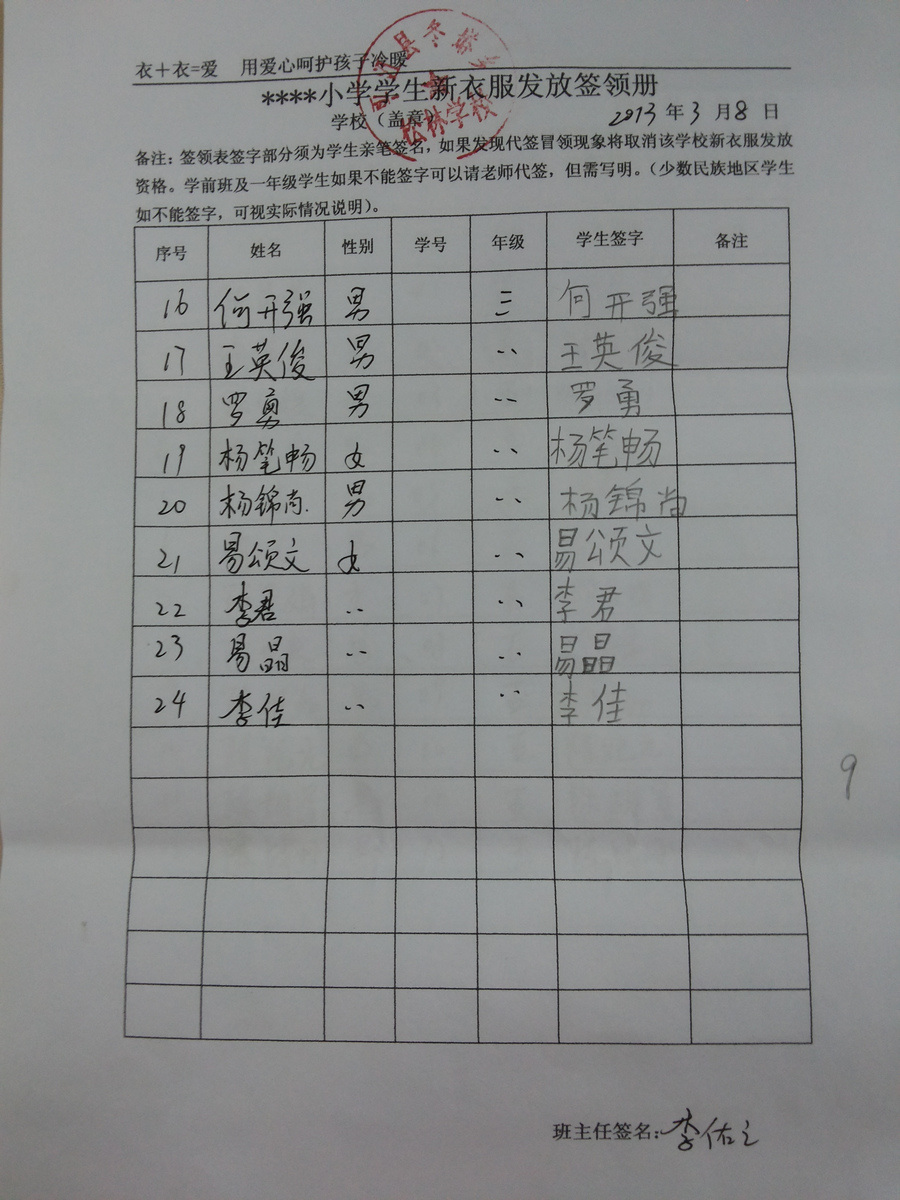 衣＋衣=爱 用爱心呵护孩子冷暖
****小学学生新衣服发放签领册
学校（盖章） 2013年3月8日
松林学校
备注：签领表签字部分须为学生亲笔签名，如果发现代签冒领现象将取消该学校新衣服发放
资格。学前班及一年级学生如果不能签字可以请老师代签，但需写明。（少数民族地区学生
如不能签字，可视实际情况说明）。
序号 姓名 性别 学号 年级 学生签字 备注
16 何开强 男 三 何开强
17 王英俊 男 ·· 王英俊
18 罗勇 男 ·· 罗勇
19 杨笔畅 女 ·· 杨笔畅
20 杨锦尚 男 ·· 杨锦尚
21 易颂文 女 ·· 易颂文
22 李君 ·· ·· 李君
23 易晶 ·· ·· 易晶
24 李佳 ·· ·· 李佳
9
班主任签名：李佑